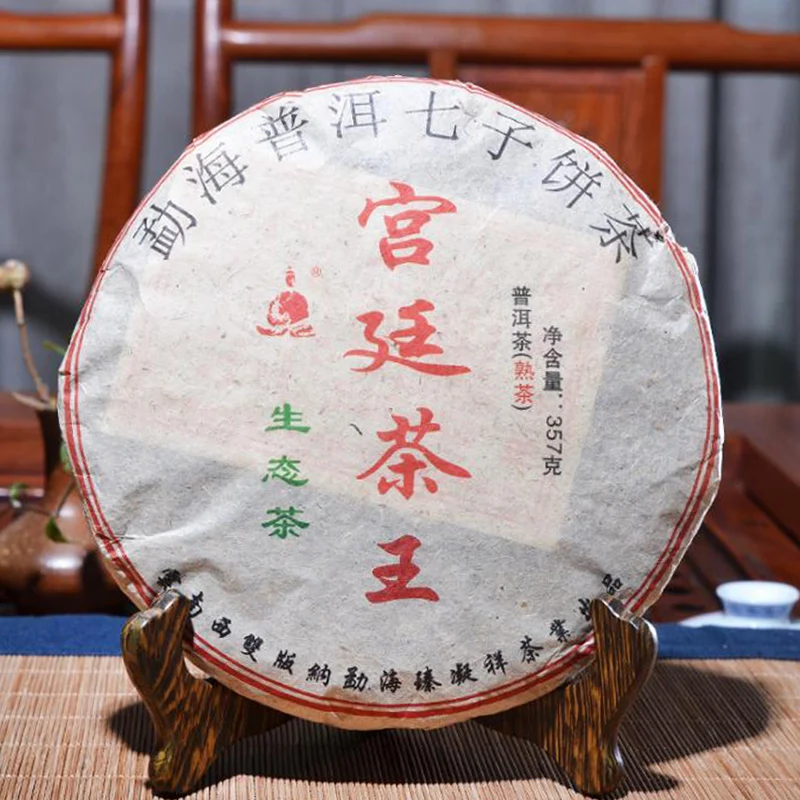 勐海普洱七子饼茶
宫廷茶王
普洱茶(熟茶)
净含量：357克
®
生态茶
雲南西雙版納勐海臻凝祥茶業出品